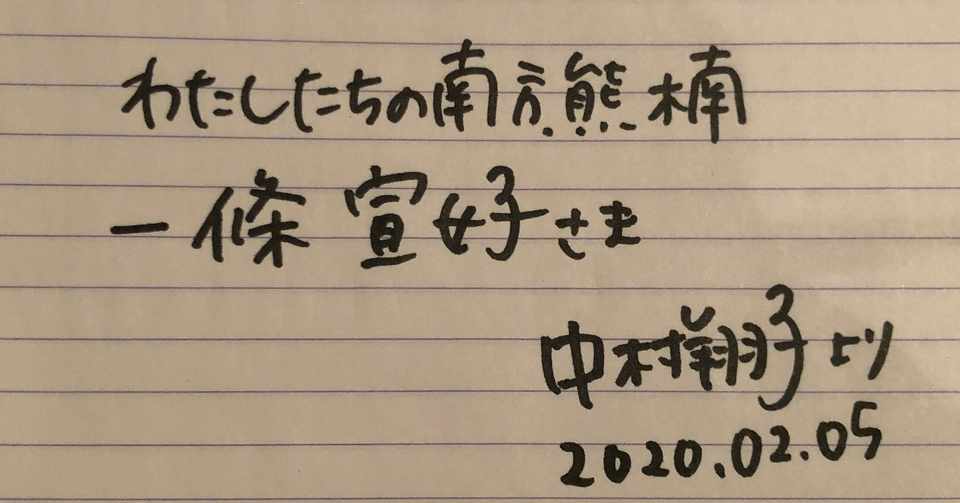 わたしたちの南方熊楠
一條宣好さま
中村翔子より
2020.02.05